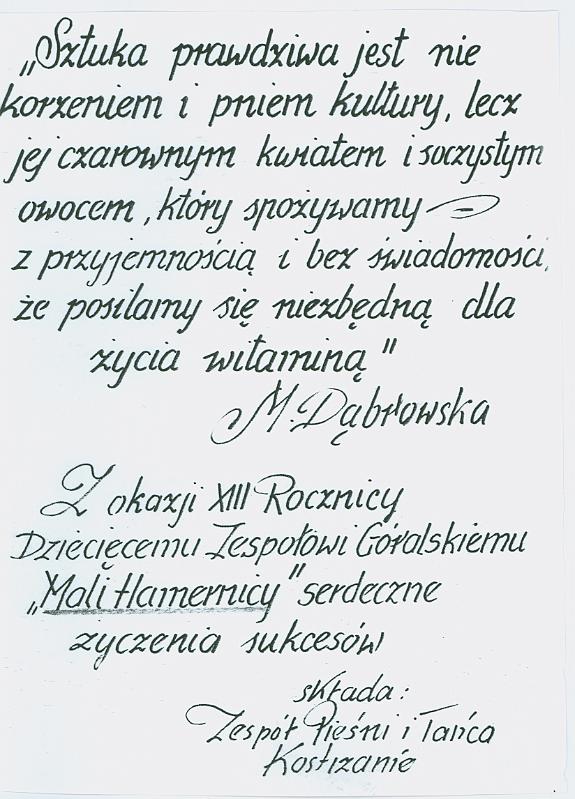 „Sztuka prawdziwa jest nie
korzeniem i pniem kultury, lecz
jej czarownym kwiatem i soczystym
owocem, który spożywamy
z przyjemnością i bez świadomości,
że posilamy się niezbędną dla
życia witaminą"
M. Dąbrowska
Z okazji XIII Rocznicy
Dziecięcemu Zespołowi Góralskiemu
„Mali Hamernicy" serdeczne
życzenia sukcesów
składa:
Zespół Pieśni i Tańca
Kostrzanie